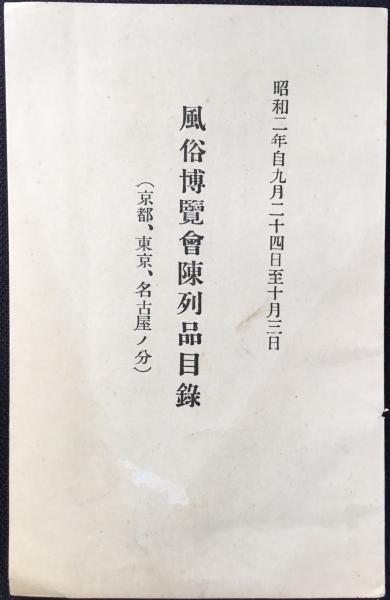 昭和二年自九月二十四日至十月三日
風俗博覽會陳列品目錄
（京都、東京、名古屋ノ分）